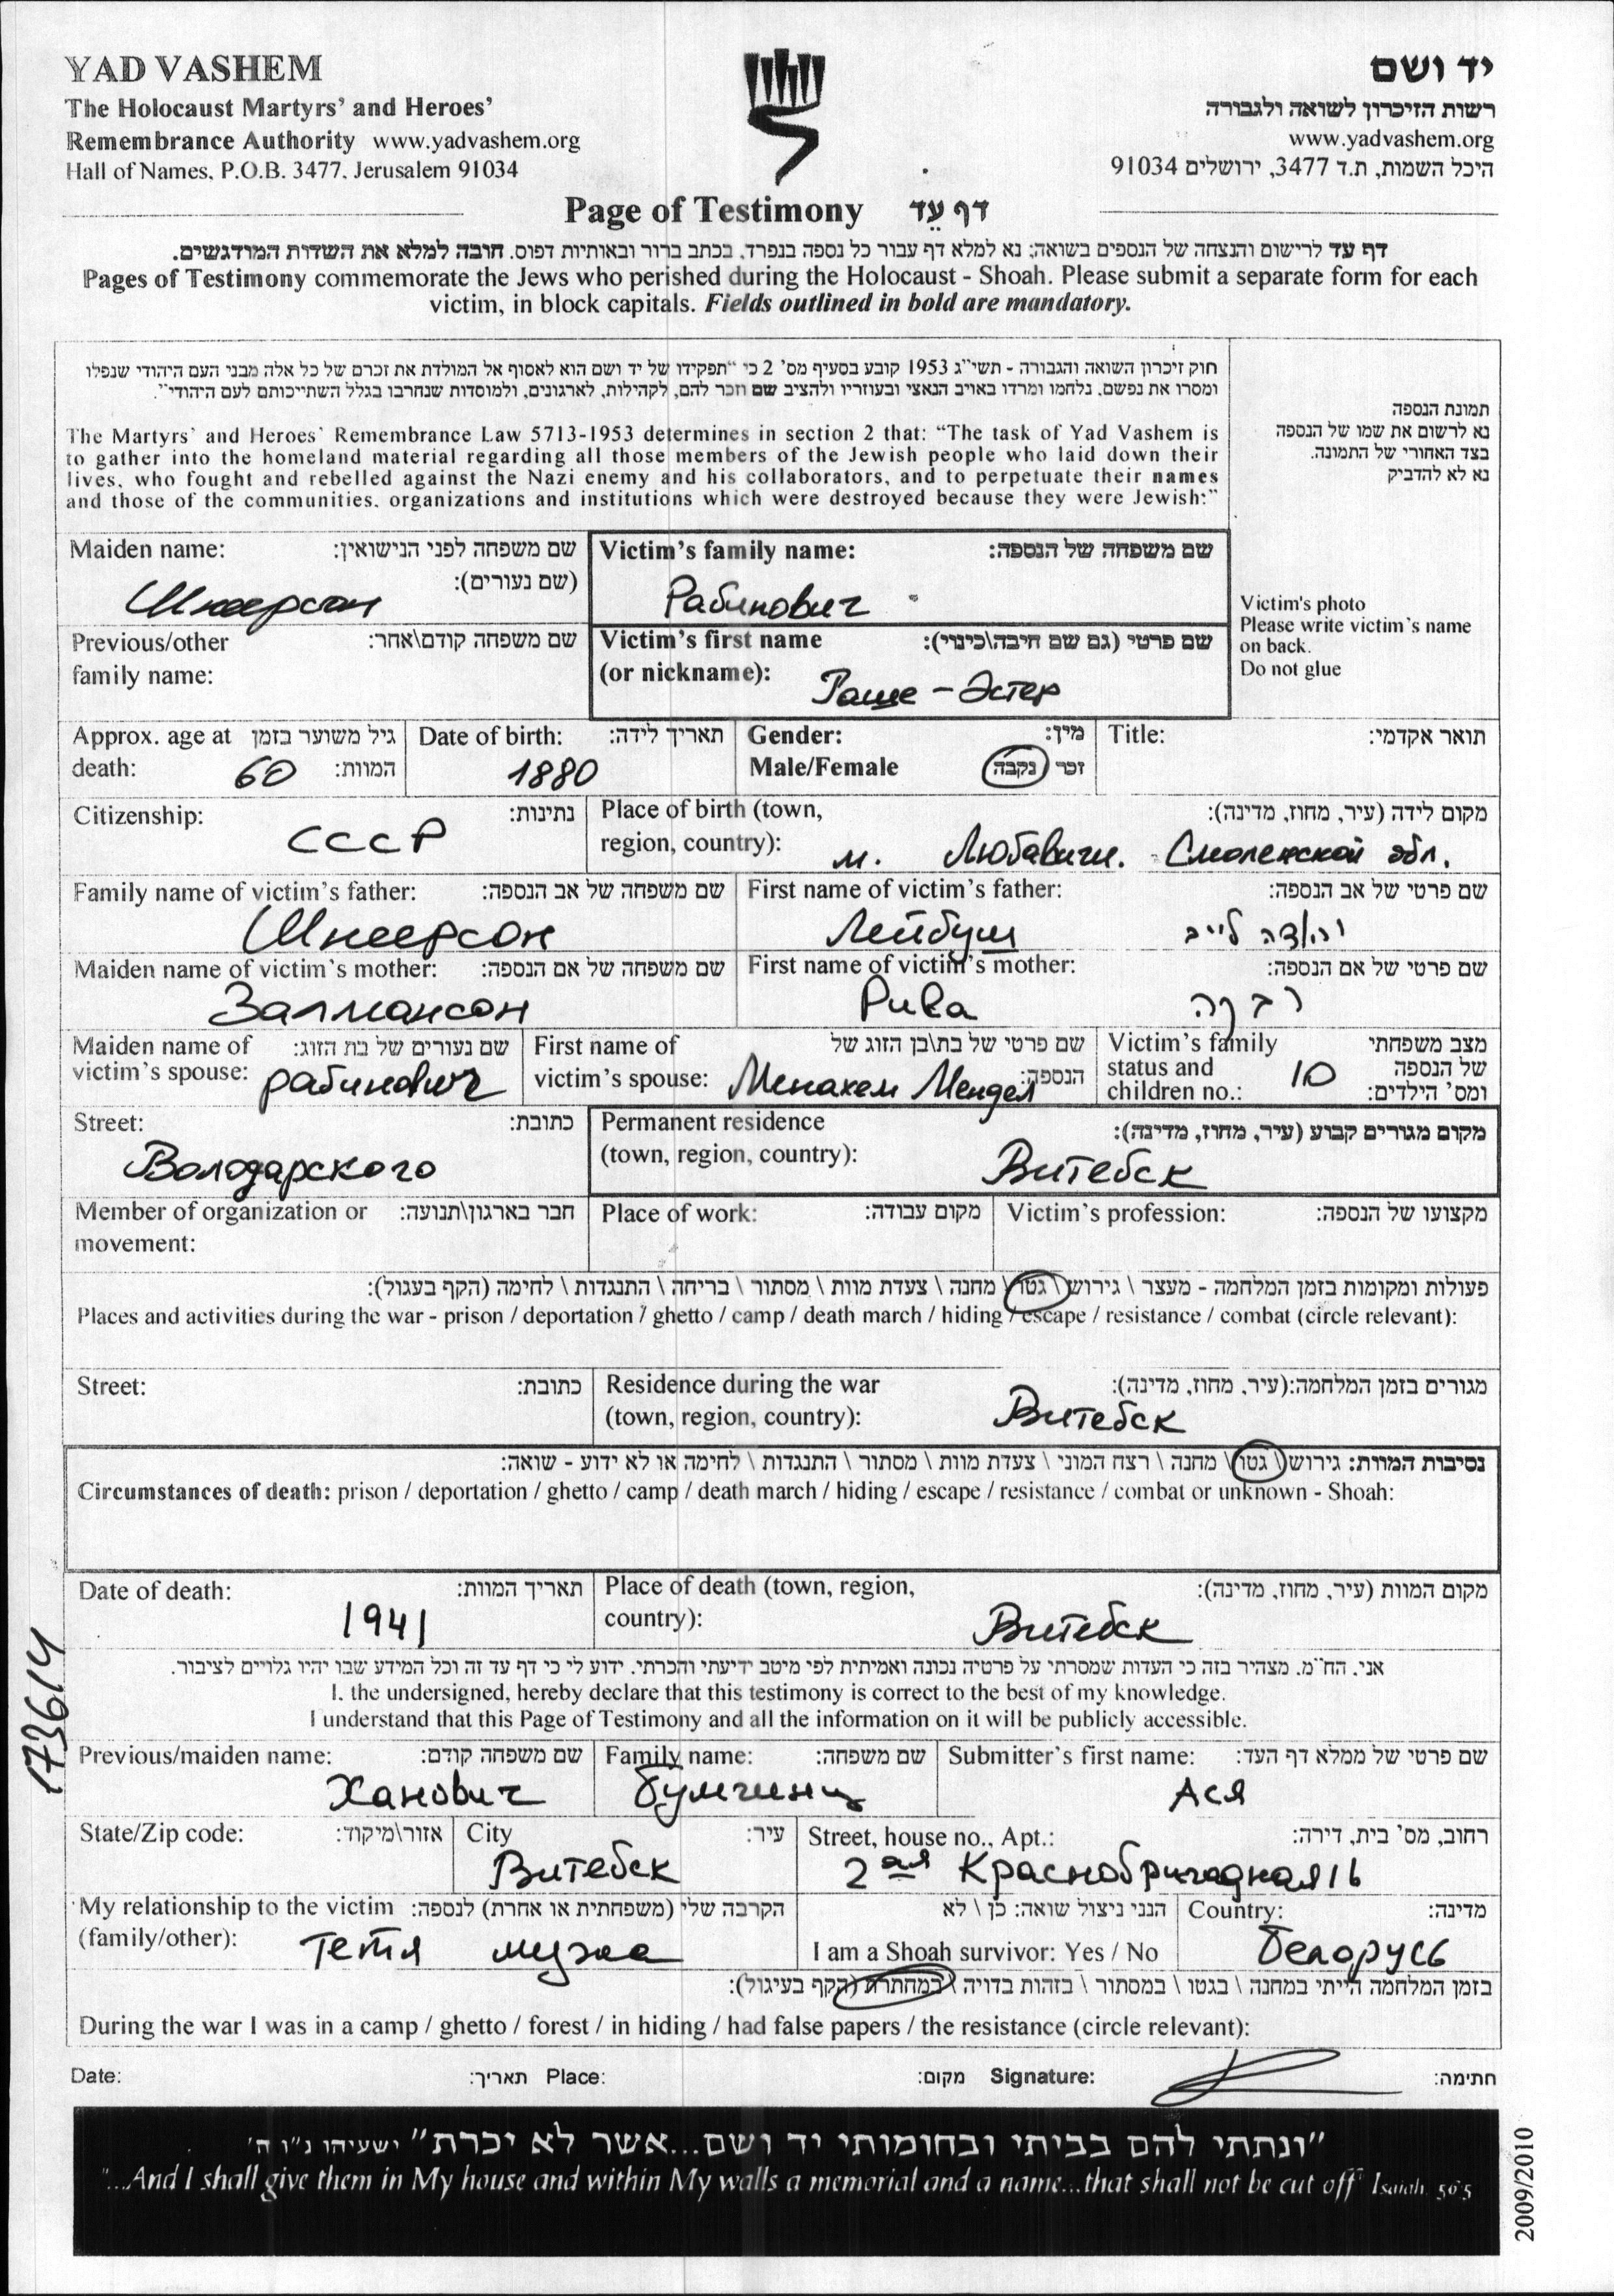 YAD VASHEM
The Holocaust Martyrs' and Heroes'
Remembrance Authority www.yadvashem.org
Hall of Names, P.O.B. 3477, Jerusalem 91034
יד ושם
רשות הזיכרון לשואה ולגבורה
www.yadvashem.org
היכל השמות, ת.ד 3477, ירושלים 91034
Page of Testimony דף עֵד
דף עד לרישום והנצחה של הנספים בשואה; נא למלא דף עבור כל נספה בנפרד, בכתב ברור ובאותיות דפוס. חובה למלא את השדות המודגשים.
Pages of Testimony commemorate the Jews who perished during the Holocaust - Shoah. Please submit a separate form for each
victim, in block capitals. Fields outlined in bold are mandatory.
חוק זיכרון השואה והגבורה - תשי"ג 1953 קובע בסעיף מס' 2 כי "תפקידו של יד ושם הוא לאסוף אל המולדת את זכרם של כל אלה מבני העם היהודי שנפלו
ומסרו את נפשם, נלחמו ומרדו באויב הנאצי ובעוזריו ולהציב שם וזכר להם, לקהילות, לארגונים, ולמוסדות שנחרבו בגלל השתייכותם לעם היהודי".
The Martyrs' and Heroes' Remembrance Law 5713-1953 determines in section 2 that: "The task of Yad Vashem is
to gather into the homeland material regarding all those members of the Jewish people who laid down their
lives, who fought and rebelled against the Nazi enemy and his collaborators, and to perpetuate their names
and those of the communities, organizations and institutions which were destroyed because they were Jewish:"
תמונת הנספה
נא לרשום את שמו של הנספה
בצד האחורי של התמונה.
נא לא להדביק
Victim's photo
Please write victim's name
on back.
Do not glue
Maiden name: שם משפחה לפני הנישואין:
(שם נעורים):
Шнеерсон
Victim's family name: שם משפחה של הנספה:
Рабинович
Previous/other שם משפחה קודם\אחר:
family name:
Victim's first name שם פרטי (גם שם חיבה\כינוי):
(or nickname):
Раше-Эстер
Approx. age at גיל משוער בזמן
death: 60 המוות:
Date of birth: תאריך לידה:
1880
Gender: מין:
Male/Female זכר נקבה
Title: תואר אקדמי:
Citizenship: נתינות:
СССР
Place of birth (town, מקום לידה (עיר, מחוז, מדינה):
region, country): м. Любавичи. Смоленской обл.
Family name of victim's father: שם משפחה של אב הנספה:
Шнеерсон
First name of victim's father: שם פרטי של אב הנספה:
Лейбуш לייב
Maiden name of victim's mother: שם משפחה של אם הנספה:
Залмансон
First name of victim's mother: שם פרטי של אם הנספה:
Рива רבקה
Maiden name of שם נעורים של בת הזוג:
victim's spouse: рабинович
First name of שם פרטי של בת\בן הזוג של
victim's spouse: Менахем Мендел הנספה:
Victim's family מצב משפחתי
status and של הנספה
children no.: 10 ומס' הילדים:
Street: כתובת:
Володарского
Permanent residence מקום מגורים קבוע (עיר, מחוז, מדינה):
(town, region, country): Витебск
Member of organization or חבר בארגון\תנועה:
movement:
Place of work: מקום עבודה:
Victim's profession: מקצועו של הנספה:
פעולות ומקומות בזמן המלחמה - מעצר \ גירוש \ גטו \ מחנה \ צעדת מוות \ מסתור \ בריחה \ התנגדות \ לחימה (הקף בעגול):
Places and activities during the war - prison / deportation / ghetto / camp / death march / hiding / escape / resistance / combat (circle relevant):
Street: כתובת:
Residence during the war מגורים בזמן המלחמה:(עיר, מחוז, מדינה):
(town, region, country): Витебск
נסיבות המוות: גירוש \ גטו \ מחנה \ רצח המוני \ צעדת מוות \ מסתור \ התנגדות \ לחימה או לא ידוע - שואה:
Circumstances of death: prison / deportation / ghetto / camp / death march / hiding / escape / resistance / combat or unknown - Shoah:
Date of death: תאריך המוות:
1941
Place of death (town, region, מקום המוות (עיר, מחוז, מדינה):
country): Витебск
אני, הח"מ, מצהיר בזה כי העדות שמסרתי על פרטיה נכונה ואמיתית לפי מיטב ידיעתי והכרתי. ידוע לי כי דף עד זה וכל המידע שבו יהיו גלויים לציבור.
I, the undersigned, hereby declare that this testimony is correct to the best of my knowledge.
I understand that this Page of Testimony and all the information on it will be publicly accessible.
173614
Previous/maiden name: שם משפחה קודם:
Ханович
Family name: שם משפחה:
Submitter's first name: שם פרטי של ממלא דף העד:
Ася
State/Zip code: אזור\מיקוד:
City עיר:
Витебск
Street, house no., Apt.: רחוב, מס' בית, דירה:
2ая Краснобригадная 16
My relationship to the victim הקרבה שלי (משפחתית או אחרת) לנספה:
(family/other): Тетя мужа
הנני ניצול שואה: כן \ לא
I am a Shoah survivor: Yes / No
Country: מדינה:
Беларусь
בזמן המלחמה הייתי במחנה \ בגטו \ במסתור \ בזהות בדויה \ במחתרת (הקף בעיגול):
During the war I was in a camp / ghetto / forest / in hiding / had false papers / the resistance (circle relevant):
Date: תאריך: Place: מקום: Signature: חתימה:
"ונתתי להם בביתי ובחומותי יד ושם...אשר לא יכרת" ישעיהו נ"ו ה'
"...And I shall give them in My house and within My walls a memorial and a name...that shall not be cut off" Isaiah. 56:5
2009/2010